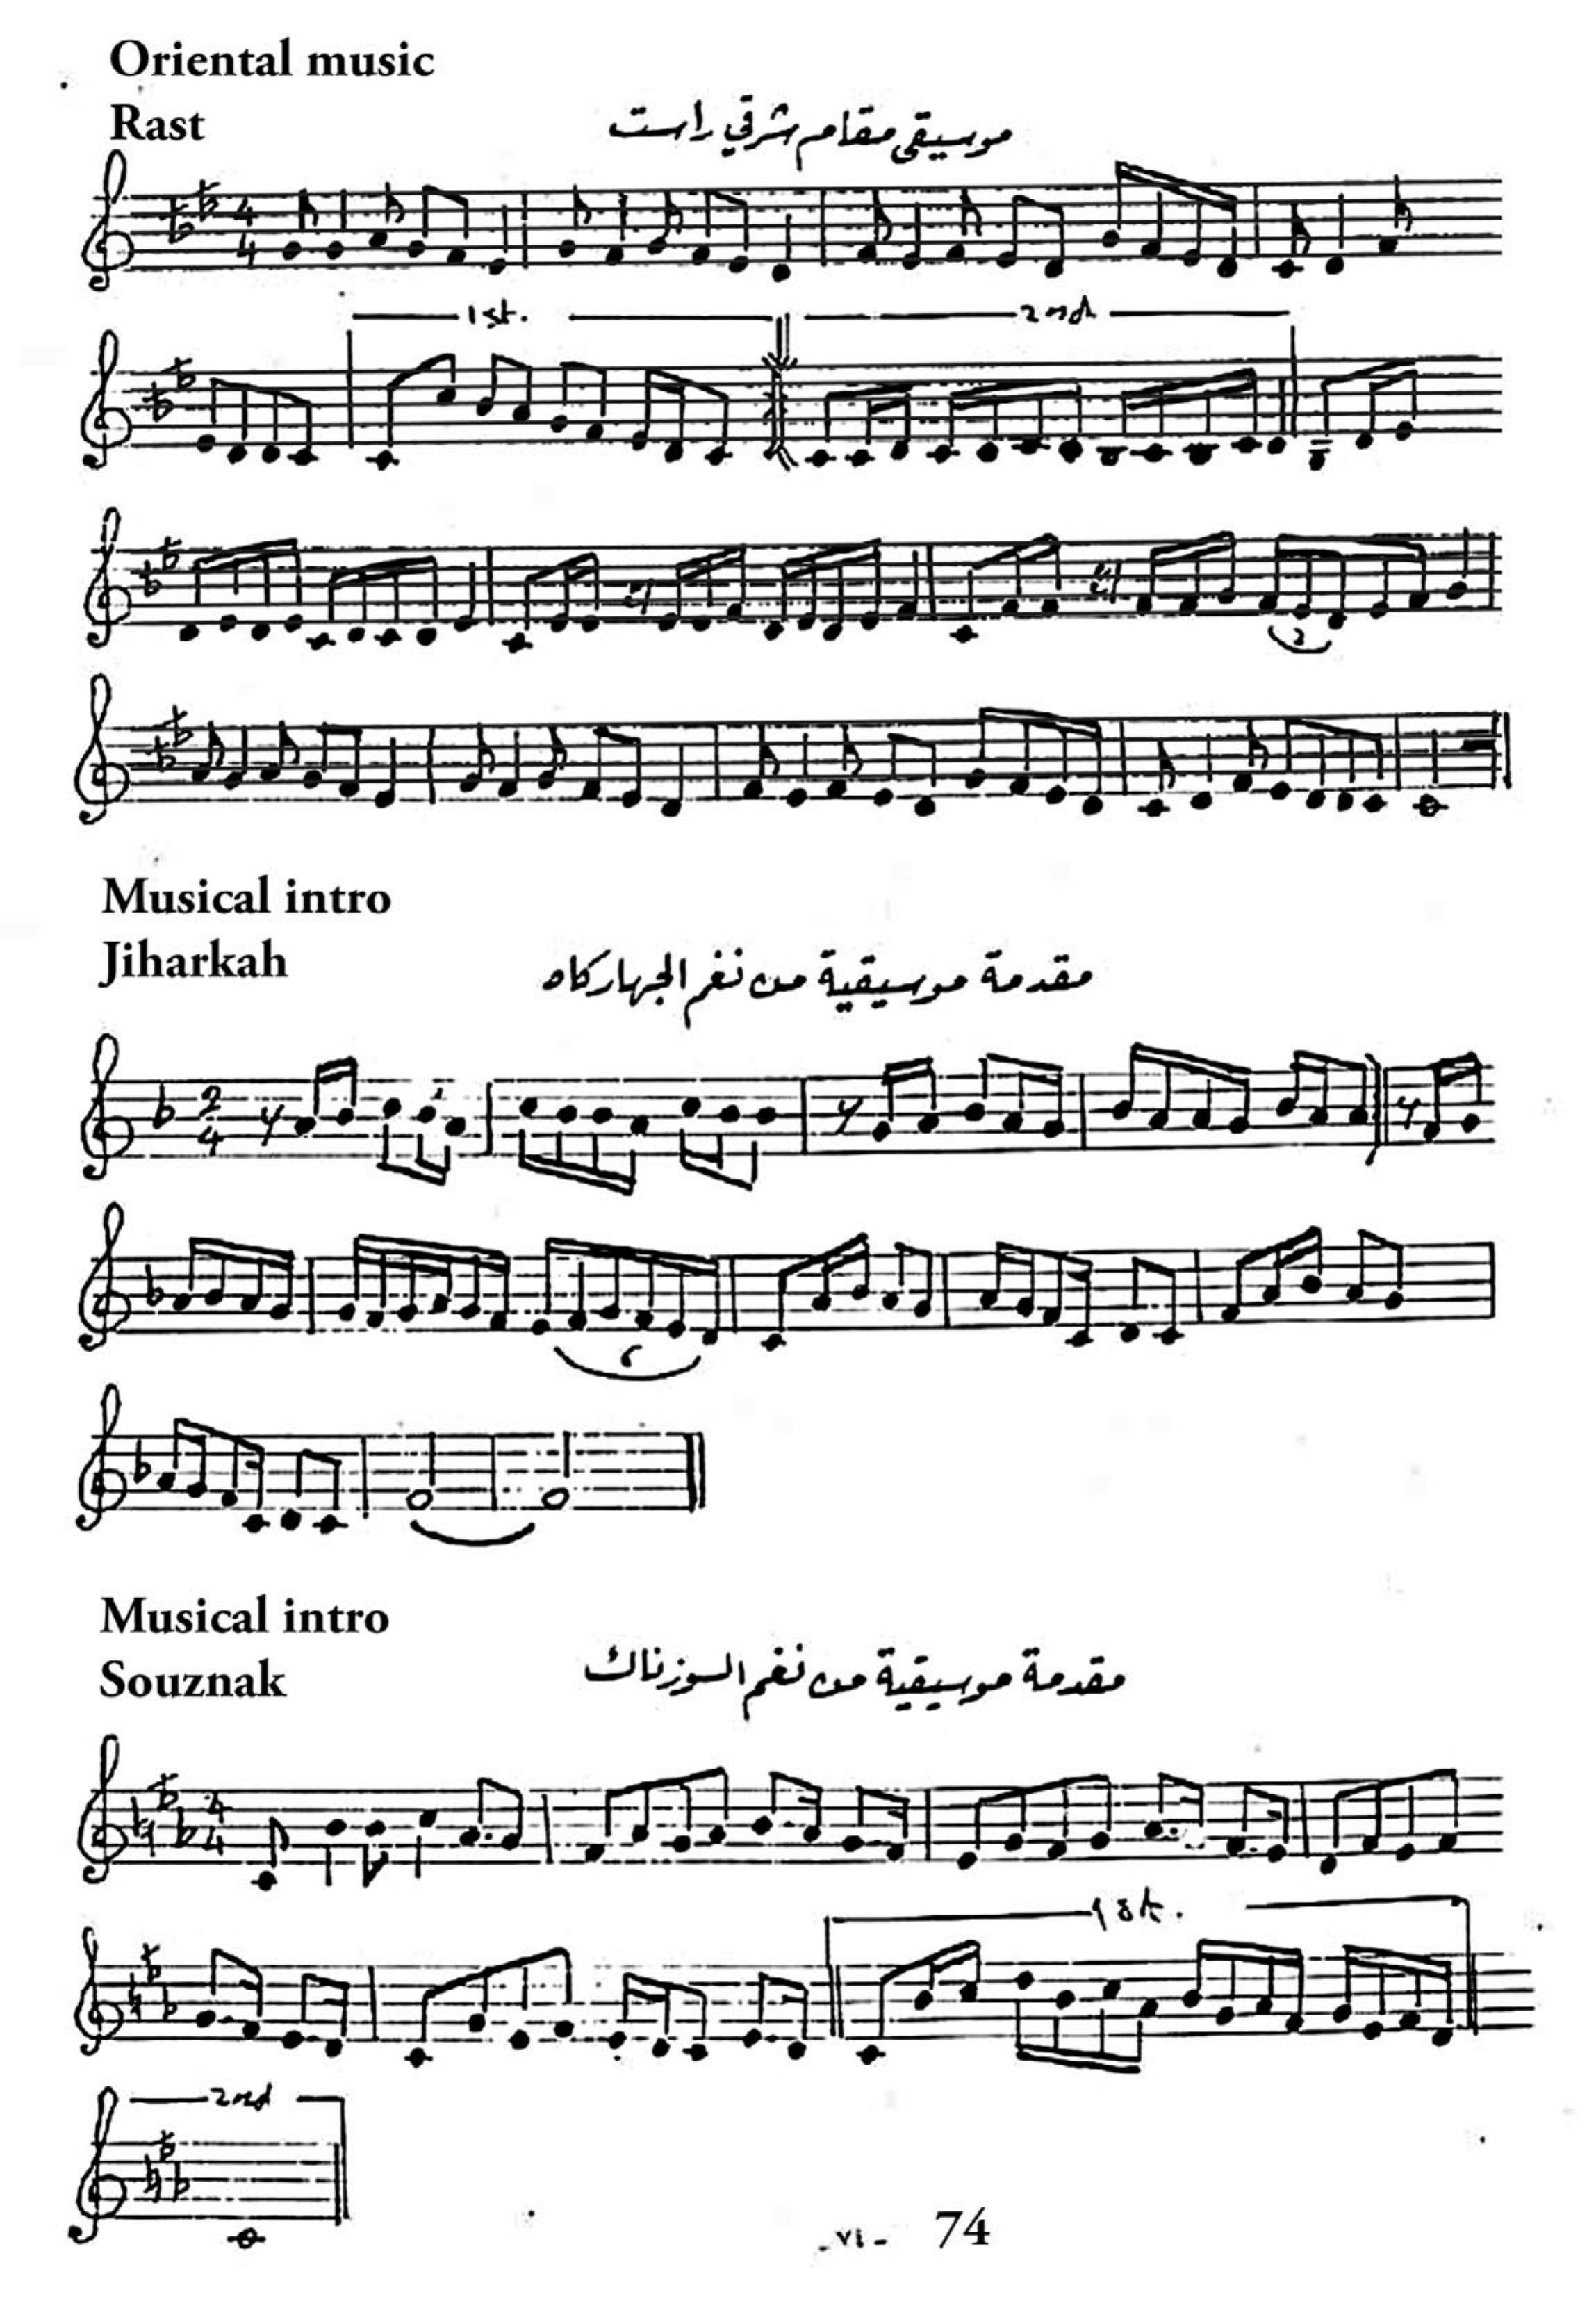 Oriental music
Rast
موسيقى مقام شرقي راست
4
4
1st.
2nd
3
Musical intro
Jiharkah
مقدمة موسيقية من نغم الجهاركاه
2
4
6
Musical intro
Souznak
مقدمة موسيقية من نغم السوزناك
4
4
1st.
2nd
- ٧١ - 74